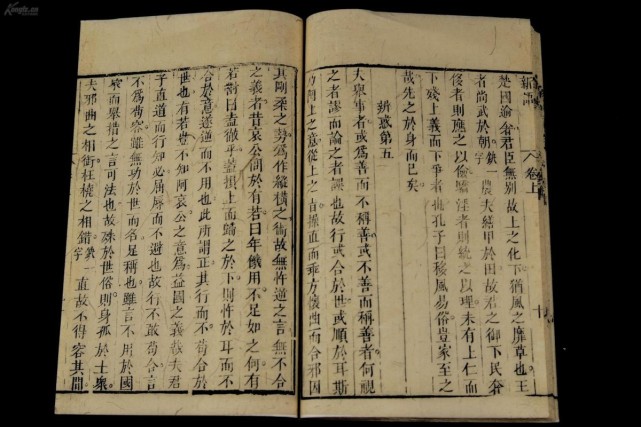 Kongfz.cn
新語
卷上
十
是國諭奢君臣無別故上之化下猶風之靡草也王
者尚武於朝缺一字農夫繕甲於田故君之御下民奢
侈者則應之以儉驕淫者則統之以理未有上仁而
下殘上義而下爭者也孔子曰移風易俗豈家至之
哉先之於身而已矣
辨惑第五
夫舉事者或為善而不稱善或不善而稱善者何視
之者謬而論之者誤也故行或合於世或順於耳斯
乃阿上之意從上之直操直而乖方懷曲而合邪因
其剛柔之勢為作縱橫之術故無忤逆之言無不合
之義者昔哀公問於有若曰年饑用不足如之何有
若對曰盍徹乎蓋損上而歸之於下則忤於耳而不
合於意遂逆而不用也此所謂正其行而不苟合於
世也有若豈不知阿哀公之意為益國之義哉夫君
子直道而行知必屈辱而不避也故行不敢苟合言
不為苟容雖無功於世而名足稱也雖言不用於國
家而舉措之言可法也故殊於世俗則身孤於士眾
夫邪曲之相銜枉橈之相錯缺一字直故不得容其間